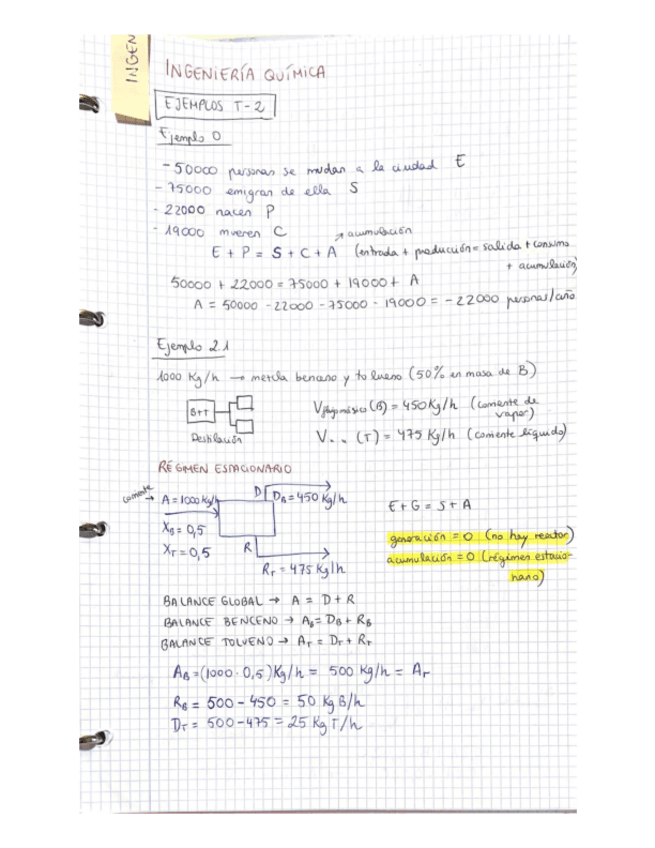 INGEN
INGENIERÍA QUÍMICA
EJEMPLOS T-2
Ejemplo 0
- 50000 personas se mudan a la ciudad E
- 75000 emigran de ella S
- 22000 nacen P
- 19000 mueren C
→ acumulación
E + P = S + C + A (entrada + producción = salida + consumo
+ acumulación)
50000 + 22000 = 75000 + 19000 + A
A = 50000 - 22000 - 75000 - 19000 = -22000 personas/año
Ejemplo 2.1
1000 Kg/h → mezcla benceno y tolueno (50% en masa de B)
B+T
Destilación
V flujo másico (B) = 450 Kg/h (corriente de
vapor)
V " " (T) = 475 Kg/h (corriente líquido)
RÉGIMEN ESTACIONARIO
corriente → A = 1000 Kg/h
D D_B = 450 Kg/h
X_B = 0,5
X_T = 0,5
R
R_T = 475 Kg/h
E + G = S + A
generación = 0 (no hay reactor)
acumulación = 0 (régimen estacio-
nario)
BALANCE GLOBAL → A = D + R
BALANCE BENCENO → A_B = D_B + R_B
BALANCE TOLUENO → A_T = D_T + R_T
A_B = (1000 · 0,5) Kg/h = 500 Kg/h = A_T
R_B = 500 - 450 = 50 Kg B/h
D_T = 500 - 475 = 25 Kg T/h